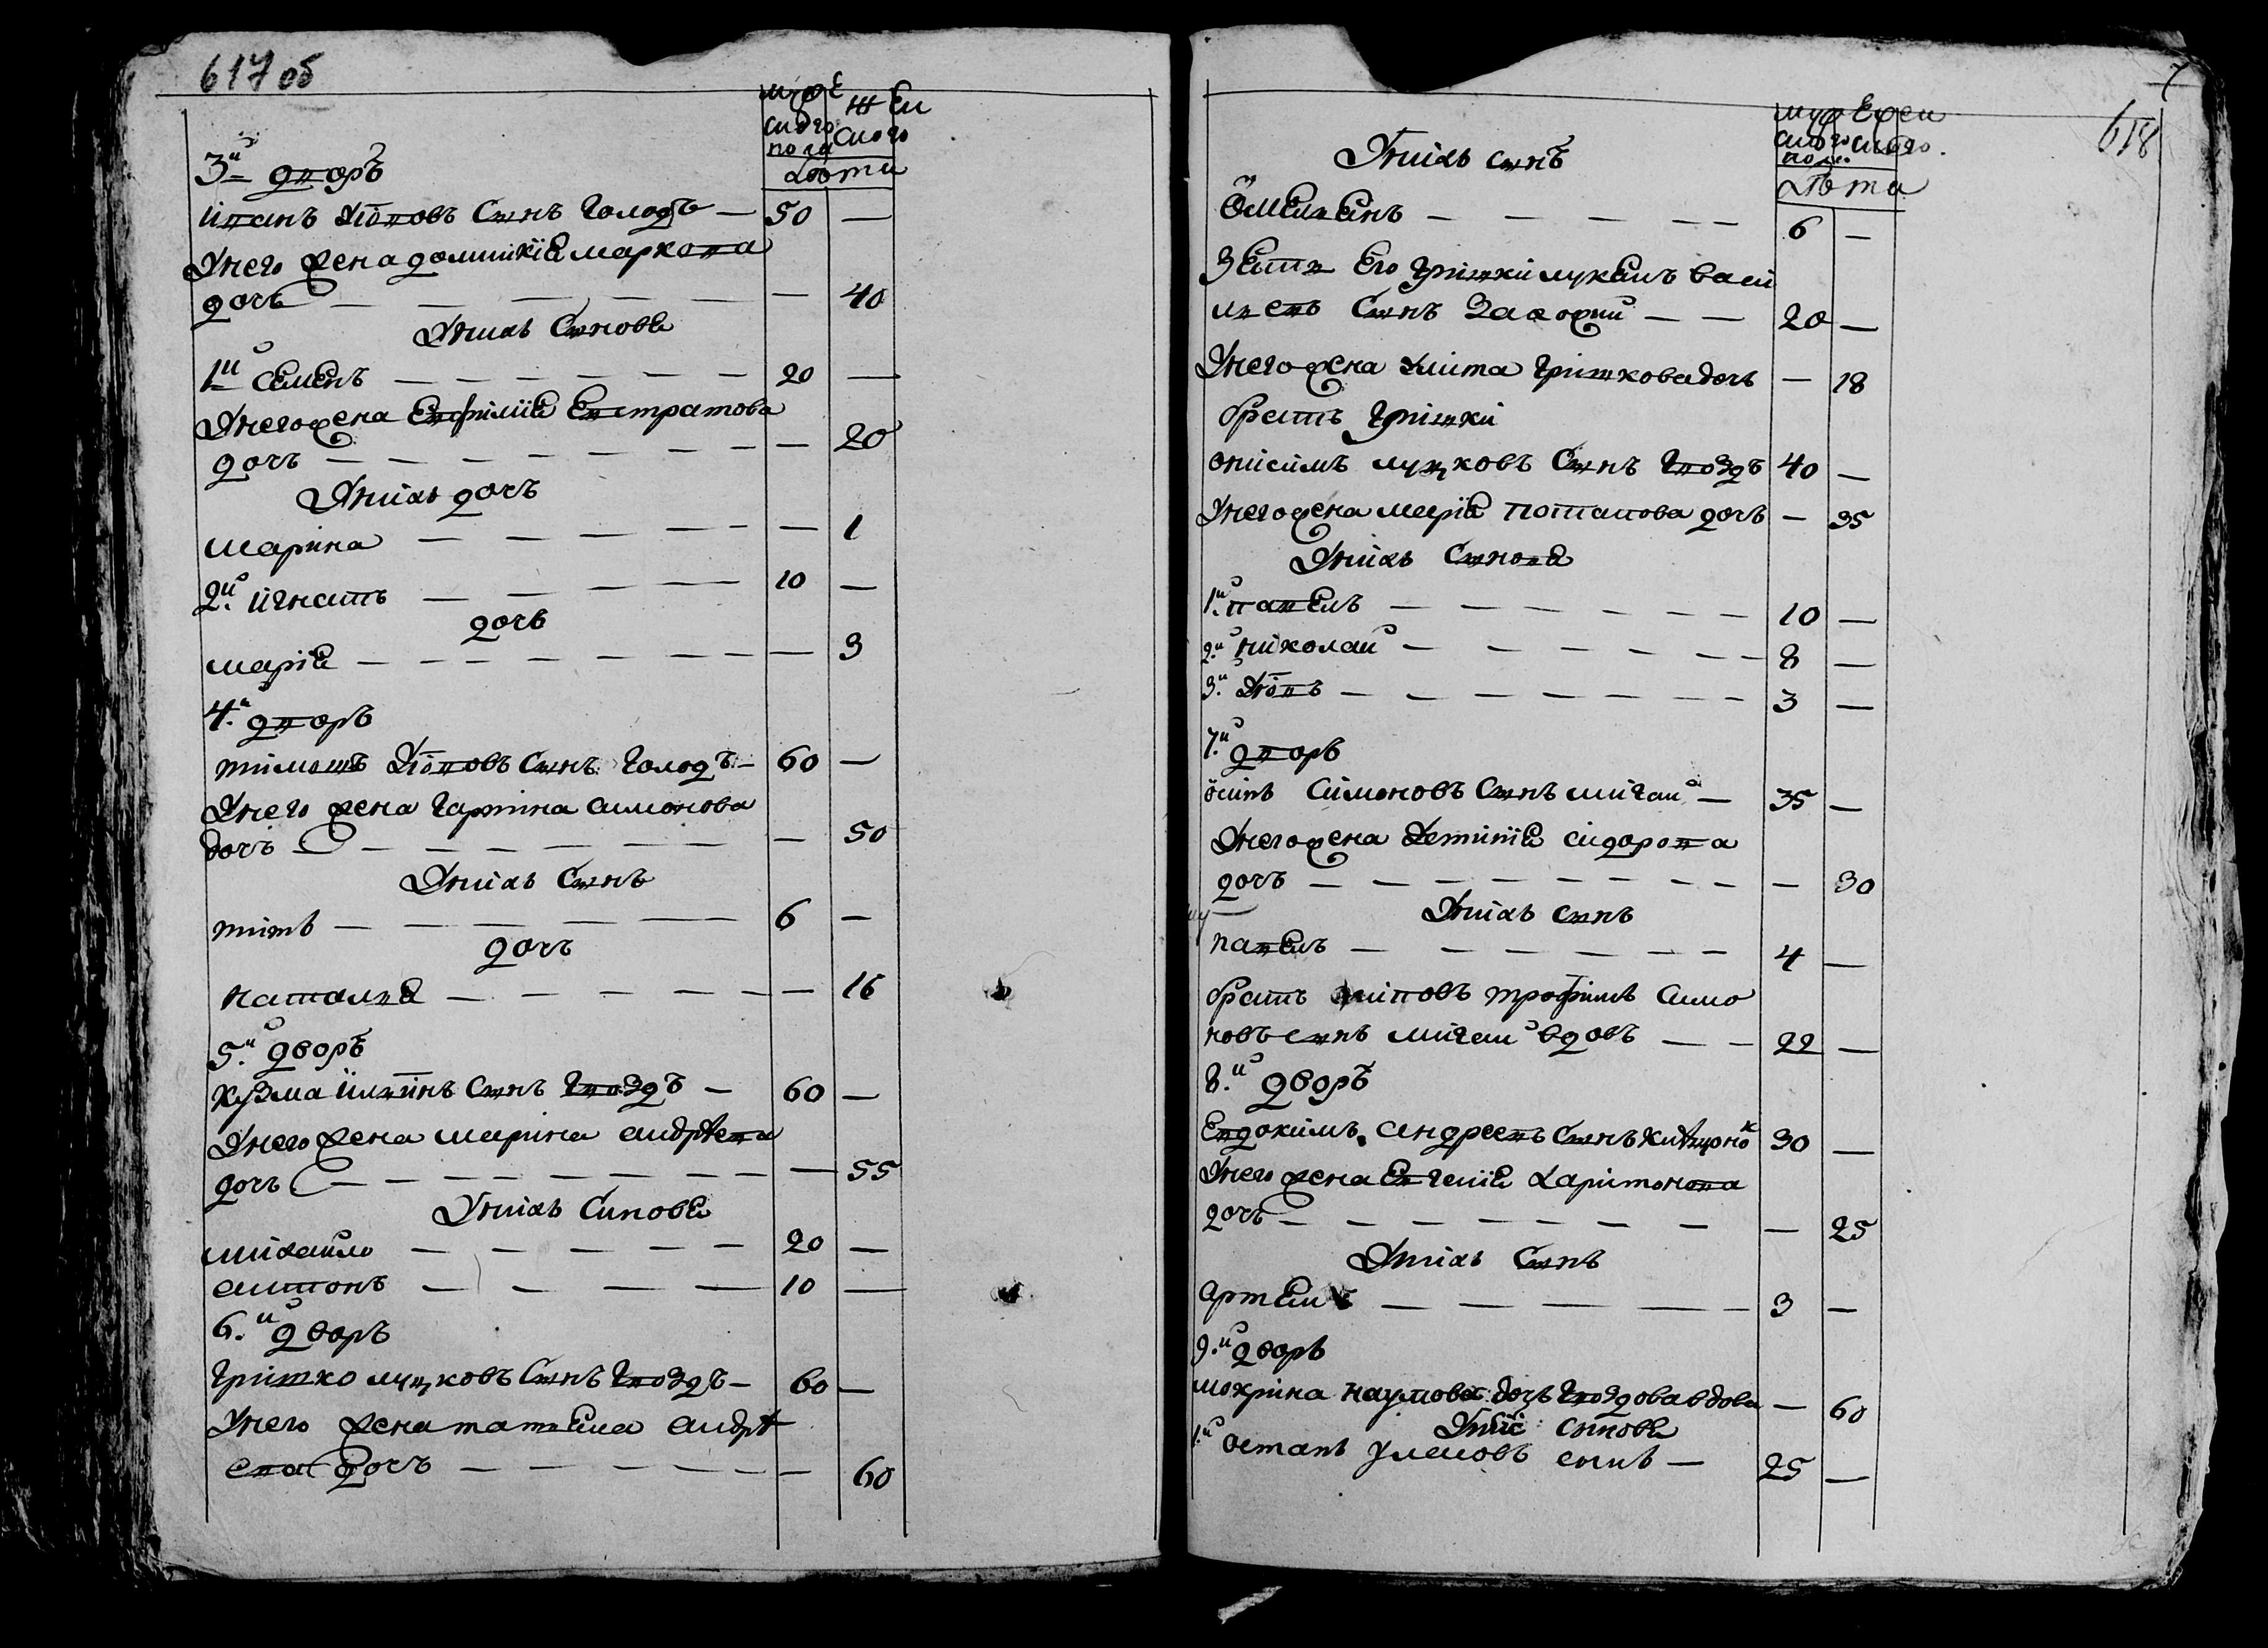 617 об
муже
ского
пола
жен
ского
лѣта
3й дворъ
иванъ яковъ сынъ голодъ — 50 —
унего жена домникіа маркова
дочь — — 40
унихъ сынове
1й семенъ — 20 —
унего жена евфиміа евстратова
дочь — — 20
унихъ дочь
марина — — 1
2й игнатъ — 10 —
дочь
маріа — — 3
4й дворъ
тимошъ сынъ голодъ — 60 —
унего жена гарпина симонова
дочь — — 50
унихъ сынъ
титъ — 6 —
дочь
наталиа — — 16
5й дворъ
кузма сынъ гвоздъ — 60 —
унего жена марина андрѣева
дочь — — 55
унихъ синове
михайло — 20 —
антонъ — 10 —
6й дворъ
гришко луцковъ сынъ гвоздъ — 60 —
унего жена татиана андрѣ
ева дочь — — 60
618
муже
ского
пола
жен
ского
лѣта
унихъ сынъ
омелианъ — 6 —
зеть его гришки лукианъ васи
лиевъ сынъ — 20 —
унего жена гришкова дочь — 18
братъ гришки
онисимъ луцковъ сынъ гвоздъ 40 —
унего жена маріа потапова дочь — 35
унихъ сынове
1й павелъ — 10 —
2й николай — 8 —
3й — 3 —
7й дворъ
осипъ симоновъ сынъ мигай — 35 —
унего жена сидорова
дочь — — 30
унихъ сынъ
павелъ — 4 —
братъ осиповъ трофимъ симо
новъ сынъ мигай вдовъ — 22 —
8й дворъ
евдокимъ андреевъ сынъ 30 —
унего жена евгеніа харитонова
дочь — — 25
унихъ сынъ
артемъ — 3 —
9й дворъ
мокрина наумова дочь гвоздова вдова — 60
сынове
1й остапъ сынъ — 25 —